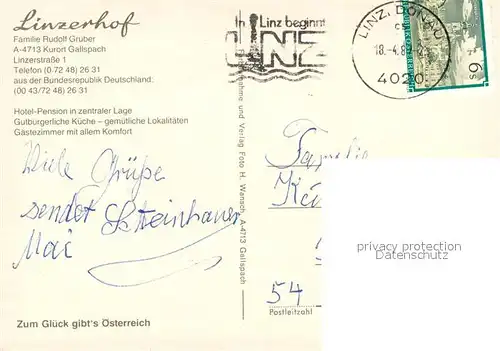 Linzerhof
Familie Rudolf Gruber
A-4713 Kurort Gallspach
Linzerstraße 1
Telefon (0 72 48) 26 31
aus der Bundesrepublik Deutschland:
(00 43/72 48) 26 31
Hotel-Pension in zentraler Lage
Gutbürgerliche Küche – gemütliche Lokalitäten
Gästezimmer mit allem Komfort
Viele Grüße
sendet Steinhauer
Mai
Zum Glück gibt's Österreich
In Linz beginnt
LINZ
LINZ, DONAU
18.-4.8
4020
6 S
Aufnahme und Verlag Foto H. Wanasch A-4713 Gallspach
Familie
54
Postleitzahl
privacy protection
Datenschutz